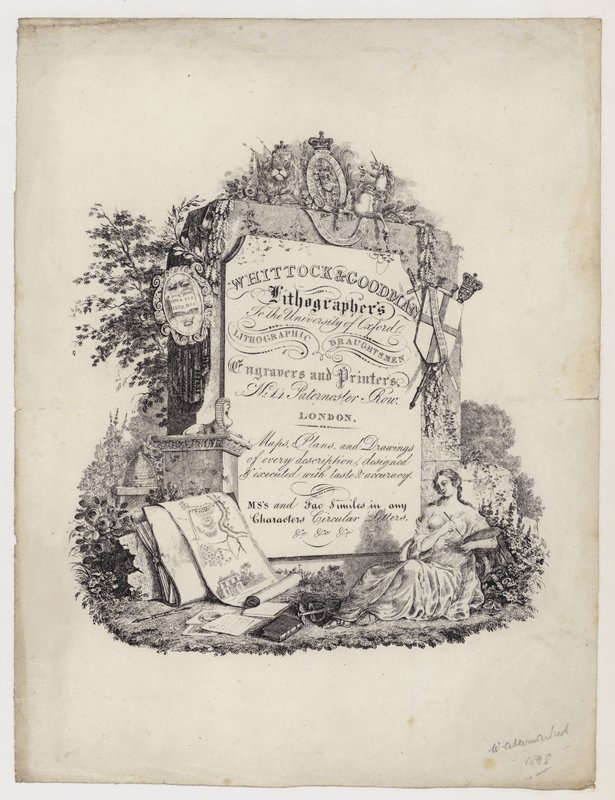 WHITTOCK & GOODMAN
Lithographer's
To the University of Oxford.
LITHOGRAPHIC DRAUGHTSMEN
Engravers and Printers,
No. 11 Paternoster Row.
LONDON.
Maps, Plans, and Drawings
of every description, designed
& executed with taste & accuracy.
MS's and Fac Similes in any
Characters Circular Letters,
&c &c &c
Watermarked